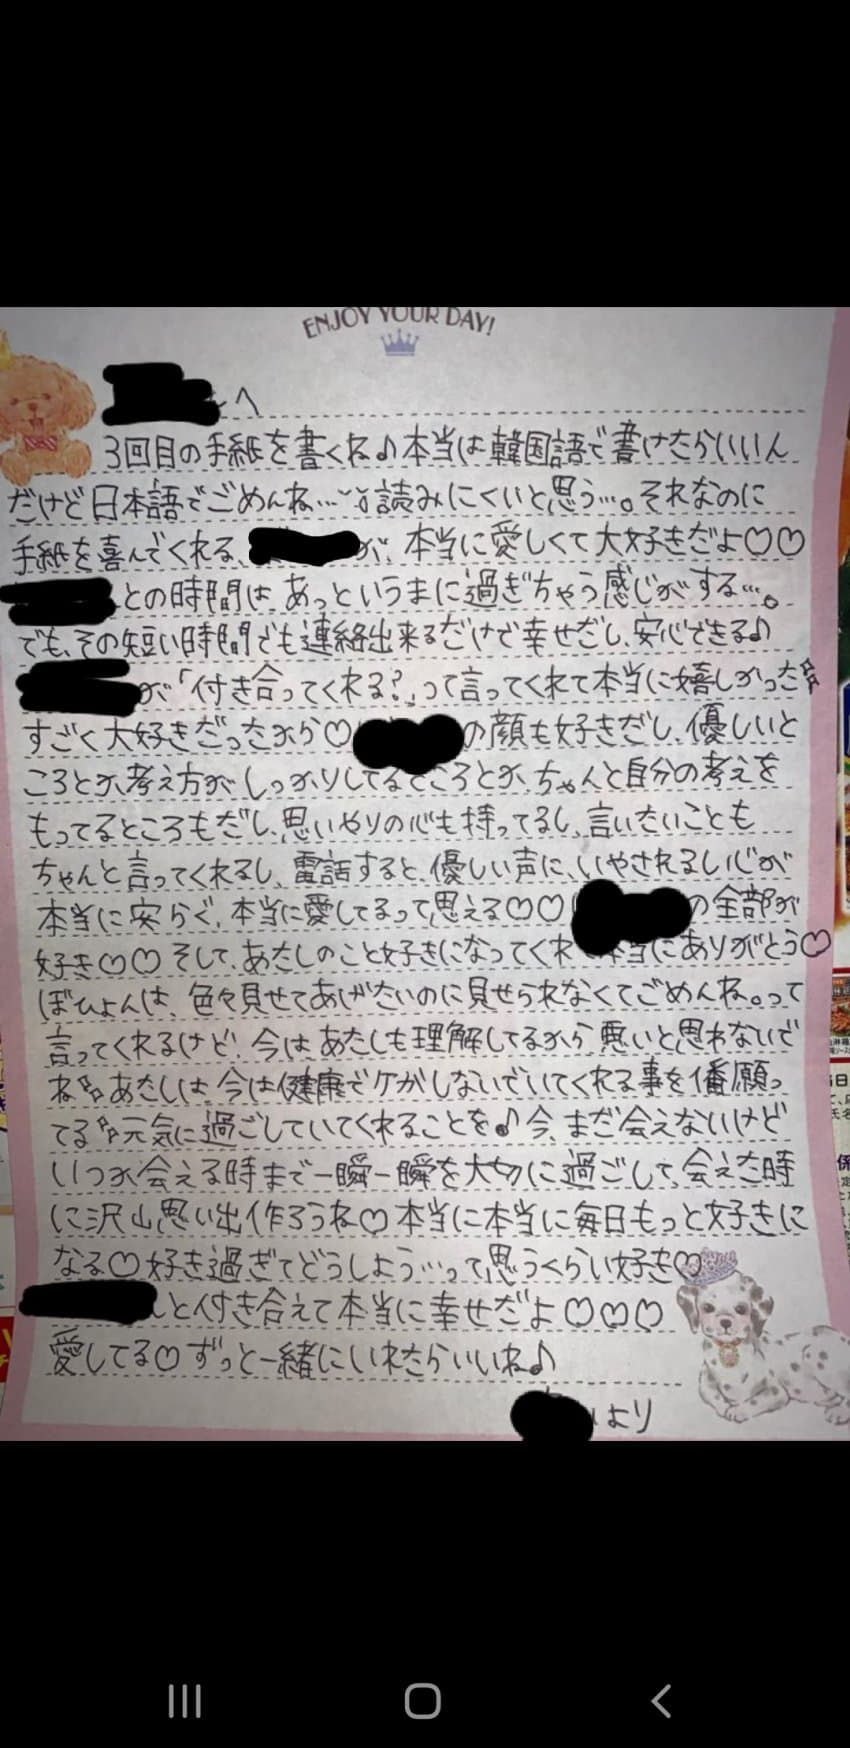 ENJOY YOUR DAY!
へ
3回目の手紙を書くね♪本当は韓国語で書けたらいいん
だけど日本語でごめんね…読みにくいと思う…。それなのに
手紙を喜んでくれる、が、本当に愛しくて大好きだよ♡♡
との時間は、あっというまに過ぎちゃう感じがする…。
でも、その短い時間でも連絡出来るだけで幸せだし、安心できる♪
が「付き合ってくれる?」って言ってくれて本当に嬉しかった
すごく大好きだったから♡の顔も好きだし、優しいと
ころとか、考え方がしっかりしてるところとか、ちゃんと自分の考えを
もってるところもだし、思いやりの心も持ってるし、言いたいことも
ちゃんと言ってくれるし、電話すると、優しい声に、いやされるし心が
本当に安らぐ、本当に愛してるって思える♡♡の全部が
好き♡♡そして、あたしのこと好きになってくれ本当にありがとう♡
ぼひょんは、色々見せてあげたいのに見せられなくてごめんね。って
言ってくれるけど、今はあたしも理解してるから、悪いと思わないで
ね、あたしは今は健康でケガしないでいてくれる事を1番願っ
てる、元気に過ごしていてくれることを♪今、まだ会えないけど
いつか会える時まで一瞬一瞬を大切に過ごして、会えた時
に沢山思い出作ろうね♡本当に本当に毎日もっと好きに
なる♡好き過ぎてどうしよう…って思うくらい好き♡
と付き合えて本当に幸せだよ♡♡♡
愛してる♡ずっと一緒にいれたらいいね♪
より